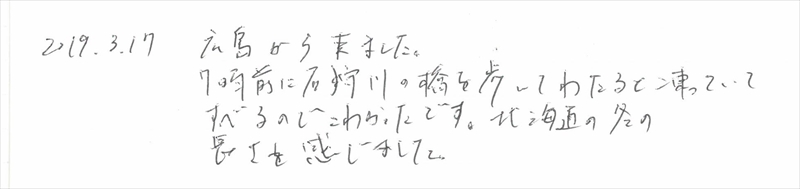 2019.3.17 広島から来ました。
7時前に石狩川の橋を歩いてわたると凍っていて
すべるのでこわかったです。北海道の冬の
長さを感じました。